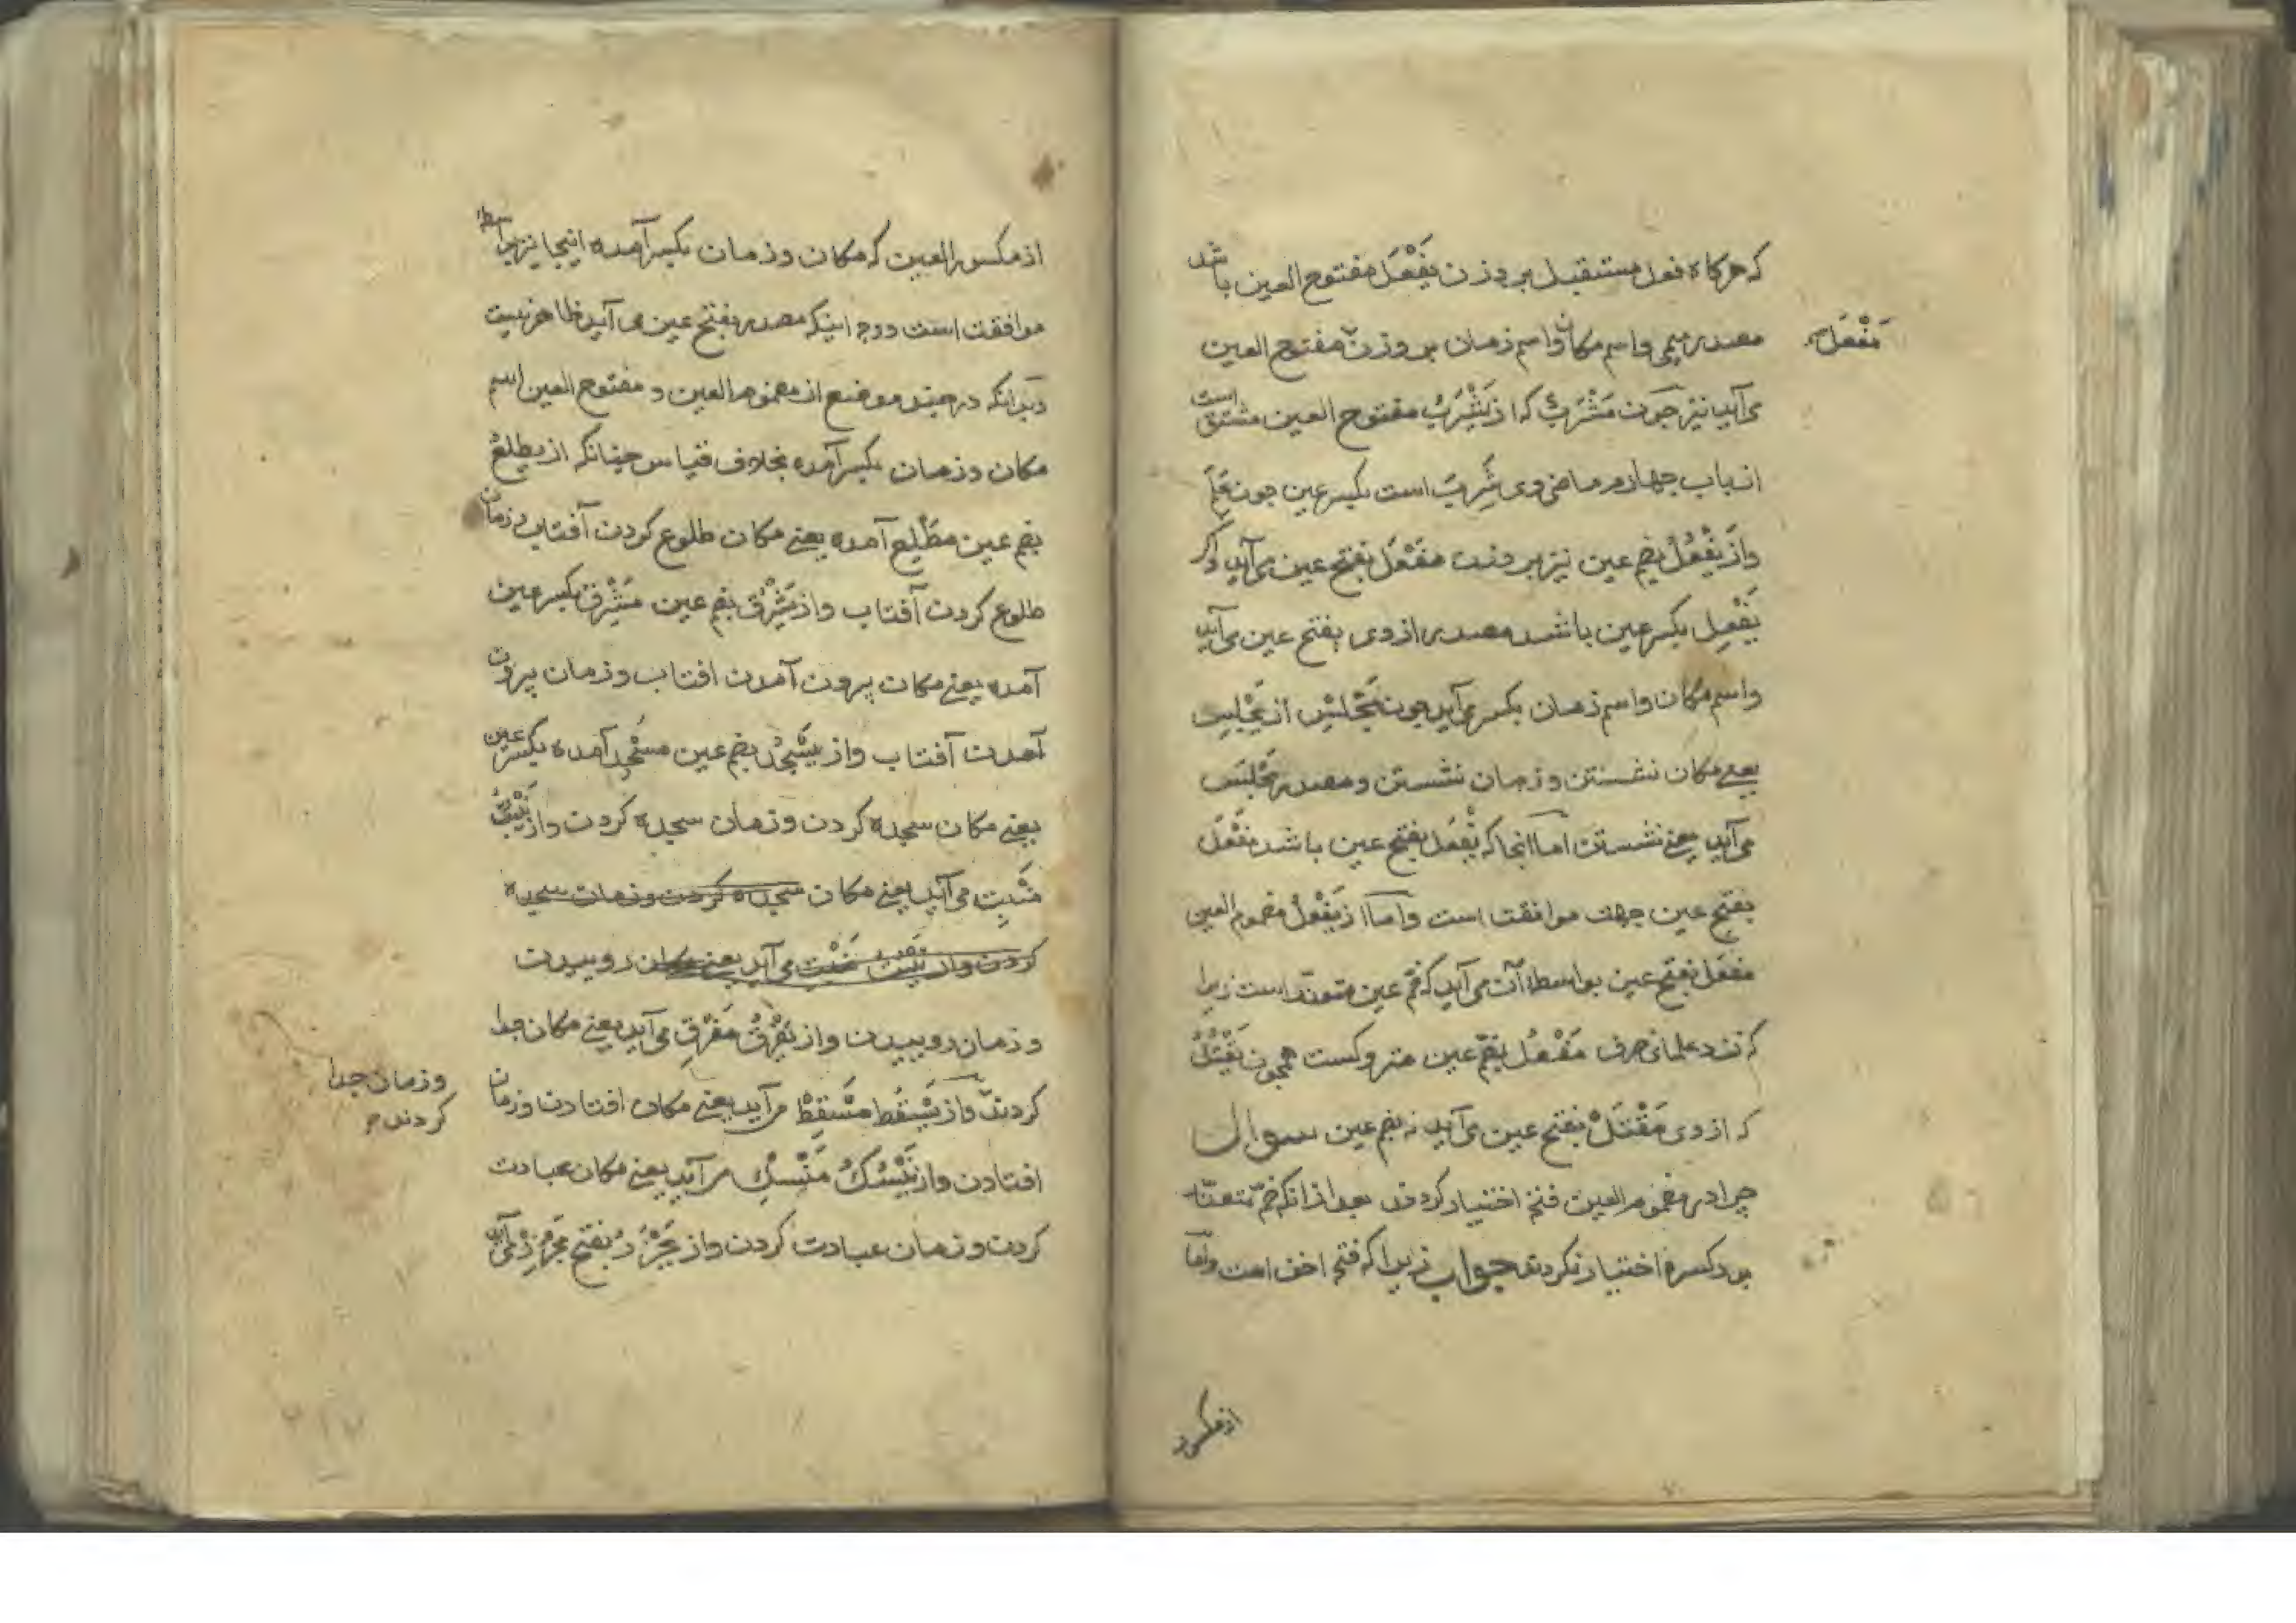 که هرکاه فعل مستقبل بر وزن یَفْعَل مفتوح العین باشد
مصدر میمی واسم مکان واسم زمان بر وزن مفتوح العین
مَفْعَل
می آید نیز چون مَشْرَبٌ که از یَشْرَبُ مفتوح العین مشتق است
از باب چهارم ماضی وی شَرِبَ است بکسر عین چون عَلِمَ
واز یَفْعُلُ بضم عین نیز بر وزن مَفْعَل بفتح عین می آید واکر
یَفْعِل بکسر عین باشد مصدر از وی بفتح عین می آید
واسم مکان واسم زمان بکسر می آید چون مَجْلِس از یَجْلِس
یعنی مکان نشستن وزمان نشستن ومصدر مَجْلَس
می آید یعنی نشستن اما انجا که یَفْعَل بفتح عین باشد مَفْعَل
بفتح عین جهت موافقت است واما از یَفْعُلُ مضموم العین
مَفْعَل بفتح عین بواسطه آن می آید که ضم عین متعذّر است زیرا
که نزد علمای صرف مَفْعُل بضمّ عین متروکست همچون یَقْتُلُ
که از وی مَقْتَلْ بفتح عین می آید نه بضم عین سوال
چرا در مضموم العین فتح اختیار کردند بعد از انکه ضمّ متعذّر
بود کسره اختیار نکردند جواب زیرا که فتح اخف است وامّا
از مکسور
از مکسور العین که مکان وزمان بکسر آمده اینجا نیز بواسطه
موافقت است ووجه اینکه مصدر بفتح عین می آید ظاهر نیست
وبدانکه در چند موضع از مضموم العین و مفتوح العین اسم
مکان وزمان بکسر آمده بخلاف قیاس چنانکه از یطلُعُ
بضم عین مَطْلِع آمده یعنی مکان طلوع کردن آفتاب وزمان
طلوع کردن آفتاب واز یَشْرُقُ بضم عین مَشْرِق بکسر عین
آمده یعنی مکان بیرون آمدن افتاب وزمان بیرون
آمدن آفتاب واز یَسْجُدُ بضم عین مسْجِد آمده بکسر عین
یعنی مکان سجده کردن وزمان سجده کردن واز یَنْبُتُ
مَنْبِت می آید یعنی مکان سجده کردن وزمان سجده
کردن واز یَنْبُت مَنْبِت می آید یعنی مکان روییدن
وزمان روییدن واز یَفْرُقُ مَفْرِق می آید یعنی مکان جدا
کردن واز یَسْقُط مَسْقِطْ می آید یعنی مکان افتادن وزمان
وزمان جدا
کردن
افتادن واز یَنْسُكُ مَنْسِك می آید یعنی مکان عبادت
کردن وزمان عبادت کردن واز یَجْزُرُ بفتح مَجْزِر می آید